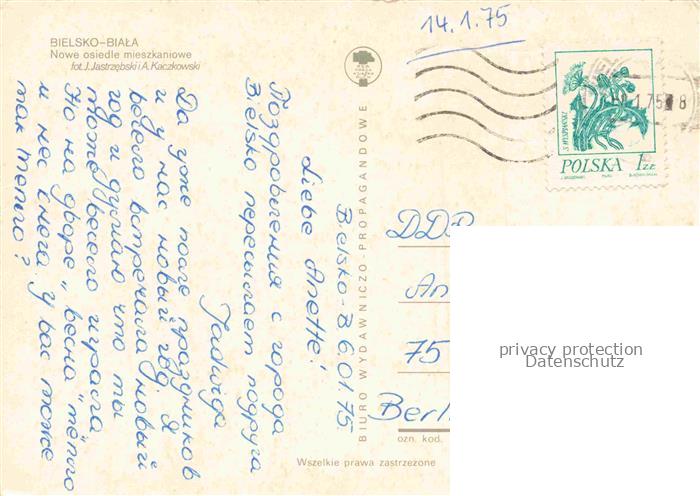 14.1.75
BIELSKO-BIAŁA
Nowe osiedle mieszkaniowe
fot. J. Jastrzębski i A. Kaczkowski
Bielsko-B 6 01 75
Liebe Anette!
Поздровьгения с города
Bielsko пересылает подруга
Jadwiga
Да уже после праздников
и у нас новый год. Я
весело встречала новый
год и думаю что ты
тоже весело играсла
Но на дворе „весна" тёпло
и нес снега. У вас тоже
так тепло?
BIURO WYDAWNICZO-PROPAGANDOWE
S. WYSPIAŃSKI
POLSKA 1 ZŁ
75 8
DDR
An
75
Berl
ozn. kod.
Wszelkie prawa zastrzeżone
privacy protection
Datenschutz